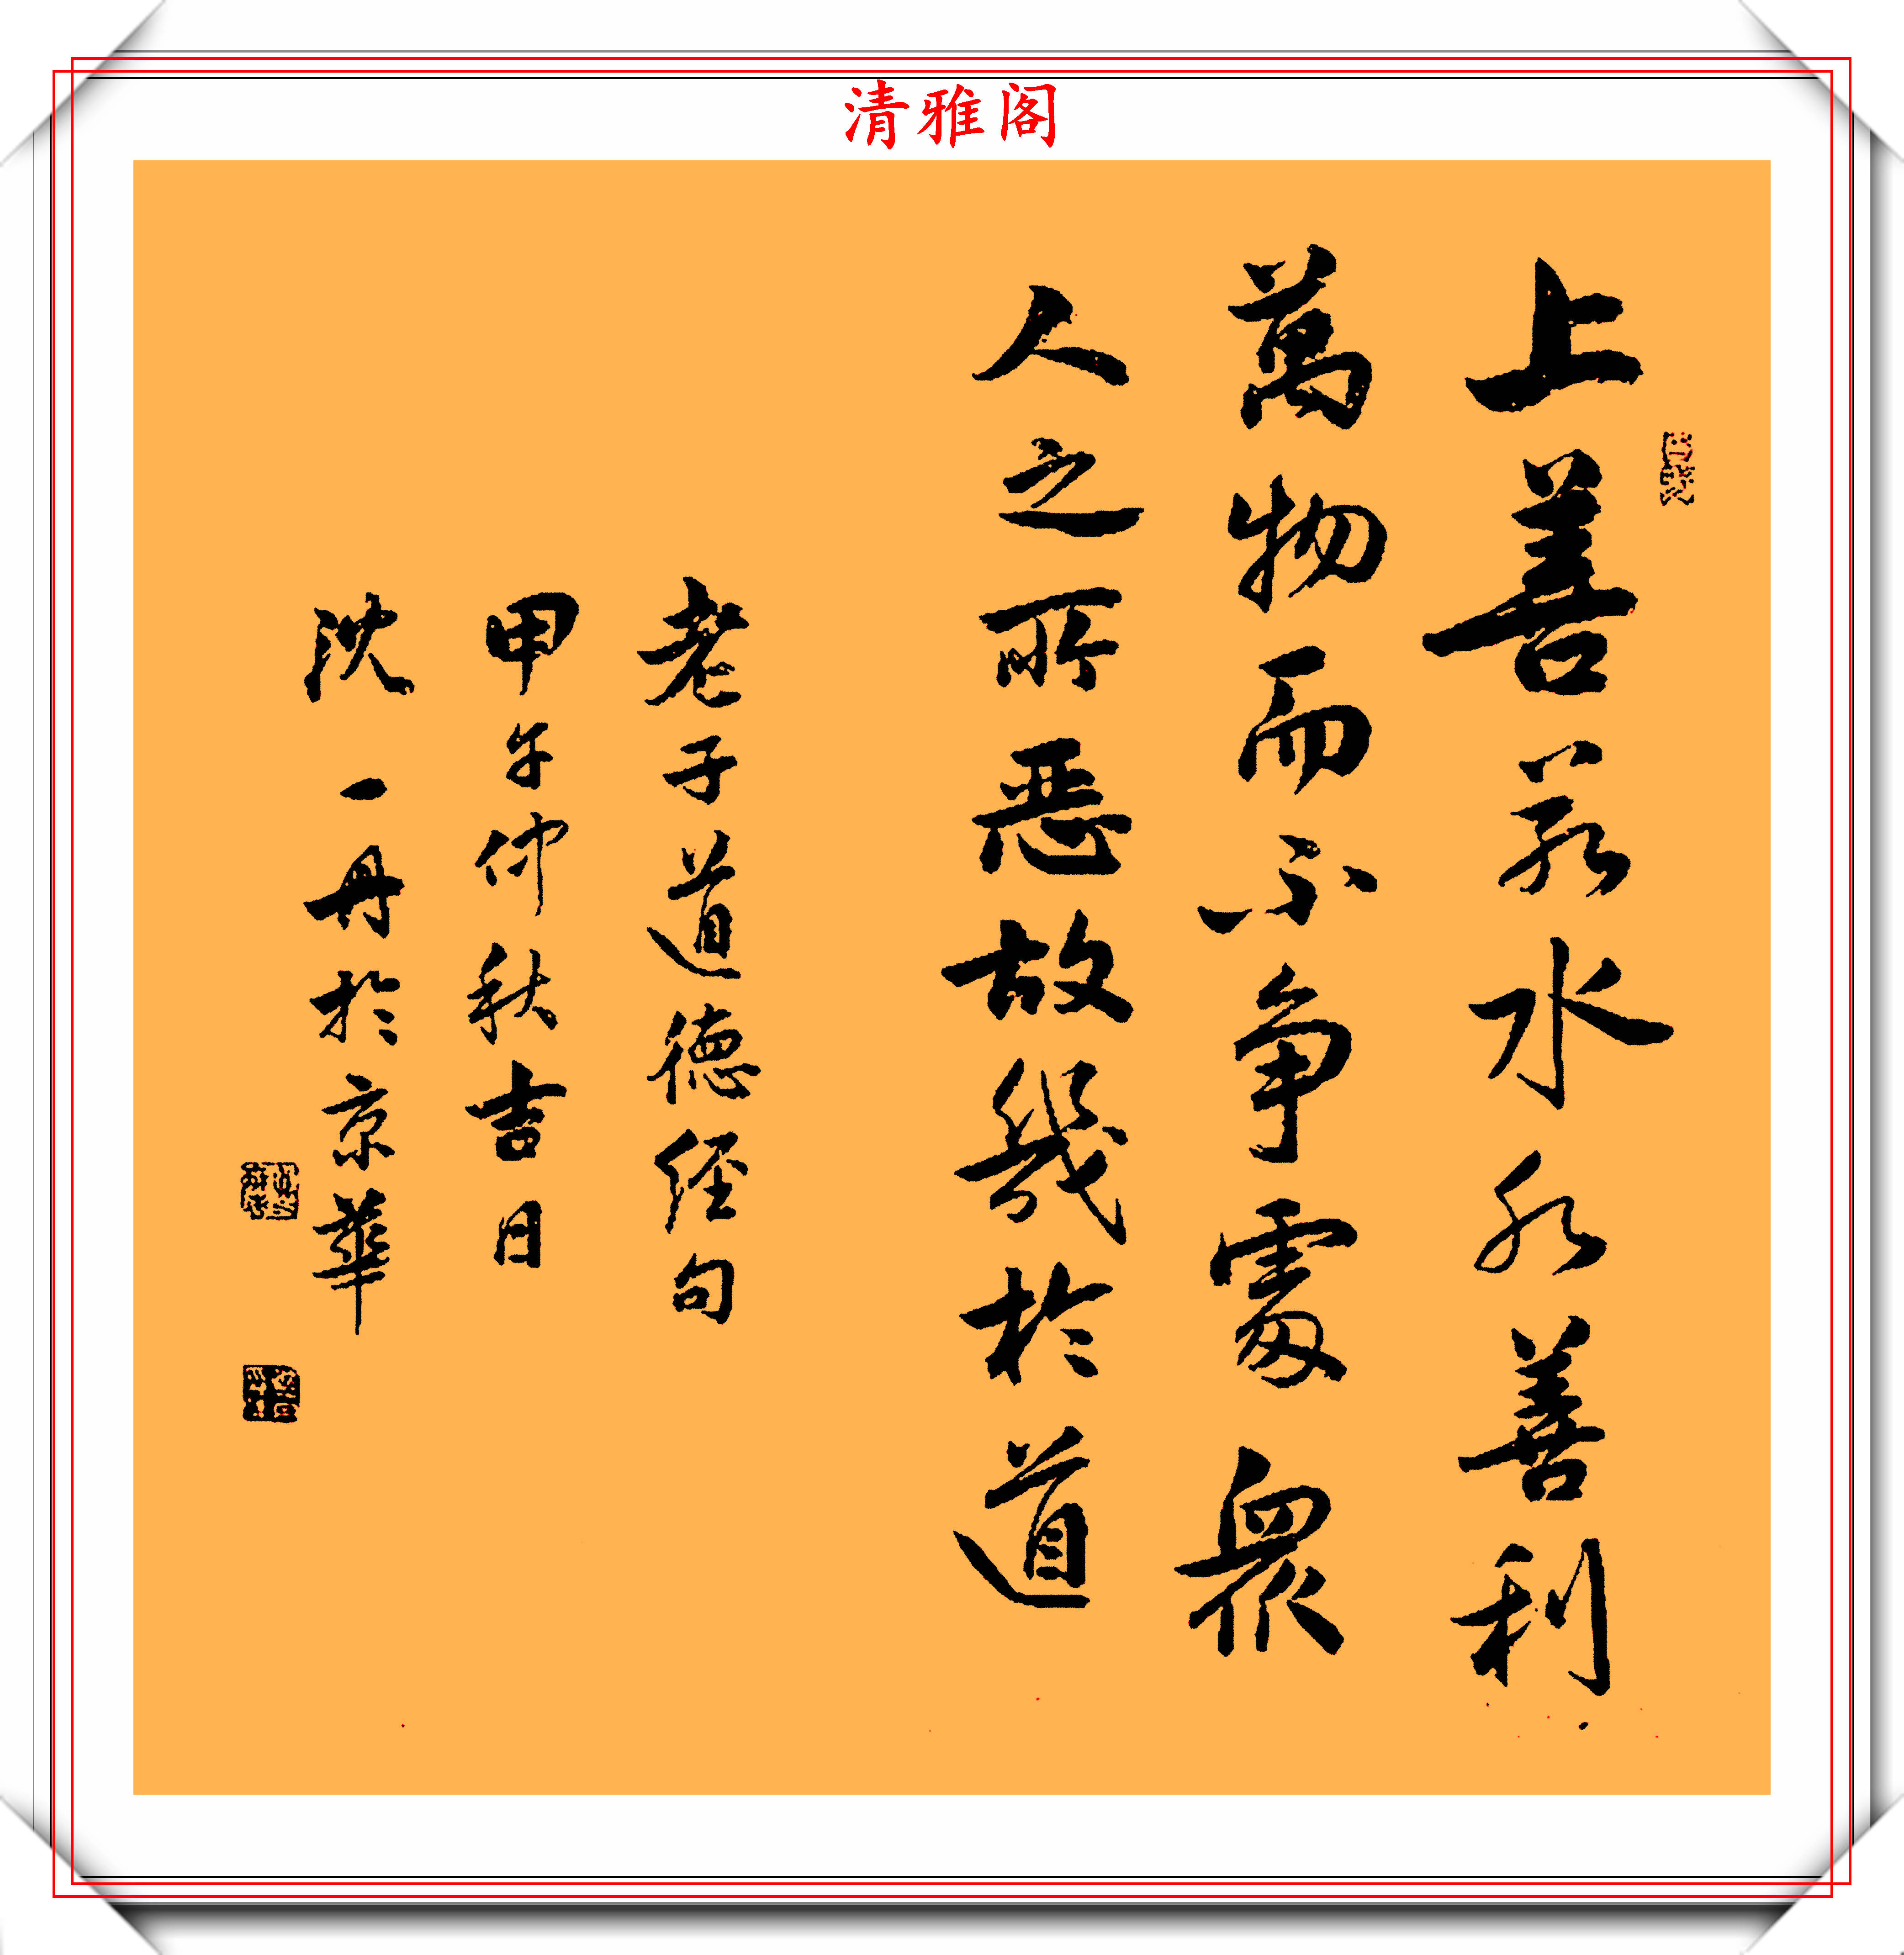 清雅阁
上善若水水善利
萬物而不争處衆
人之所恶故幾於道
老子道德经句
甲午仲秋吉日
沈一丹於京華